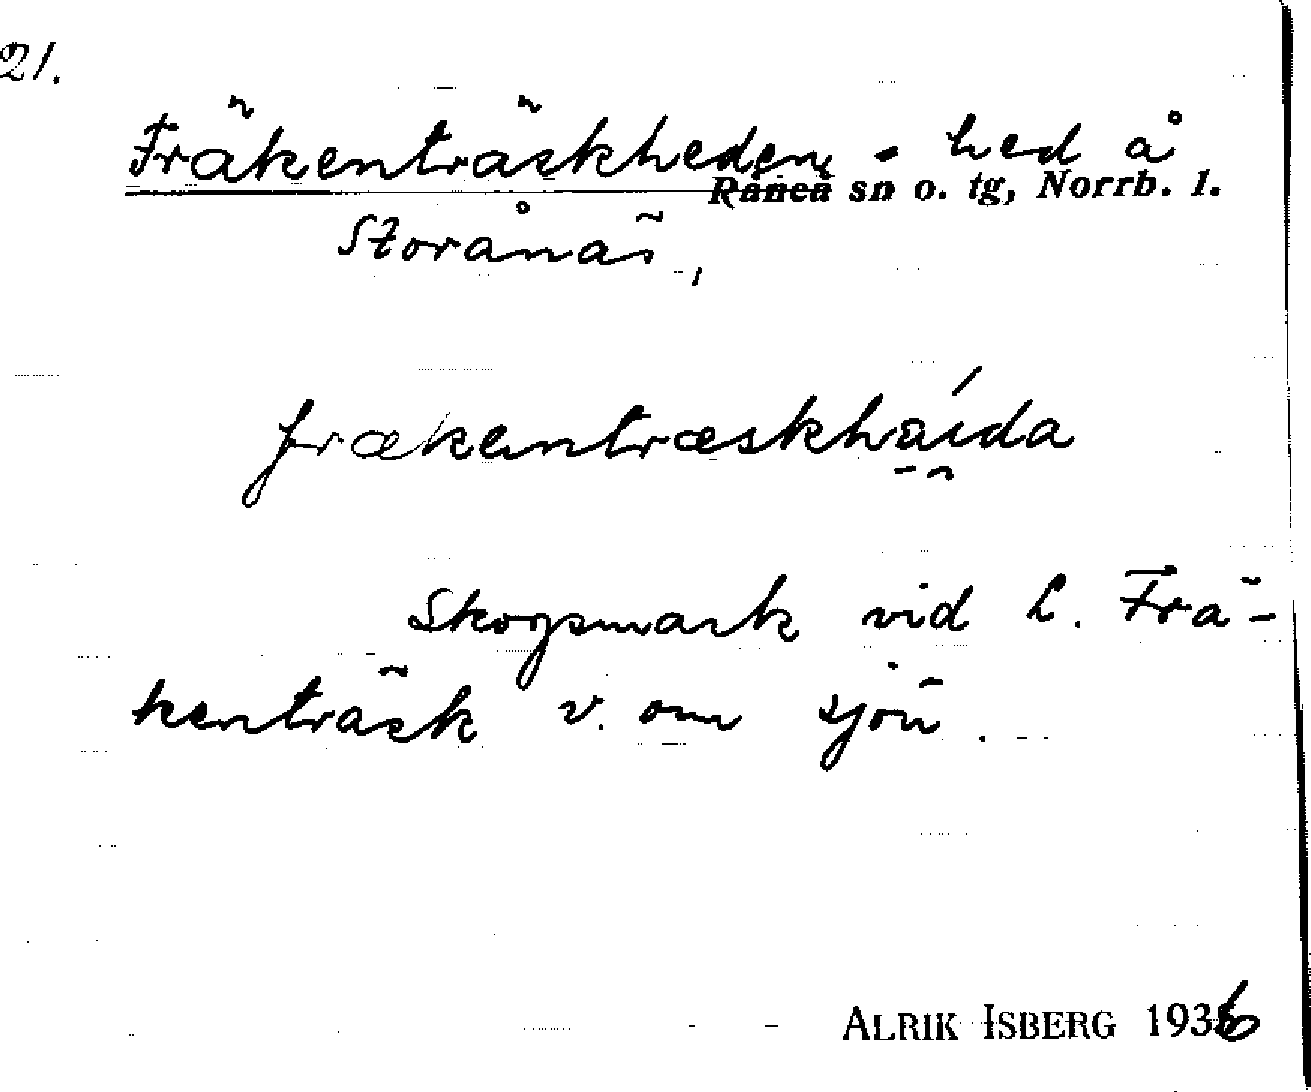 21.
Fräkenträskheden, hed å
Råneå sn o. tg, Norrb. l.
Storånäs,
frækentræskháida
Skogsmark vid L. Frä-
kenträsk v. om sjön.
ALRIK ISBERG 1936